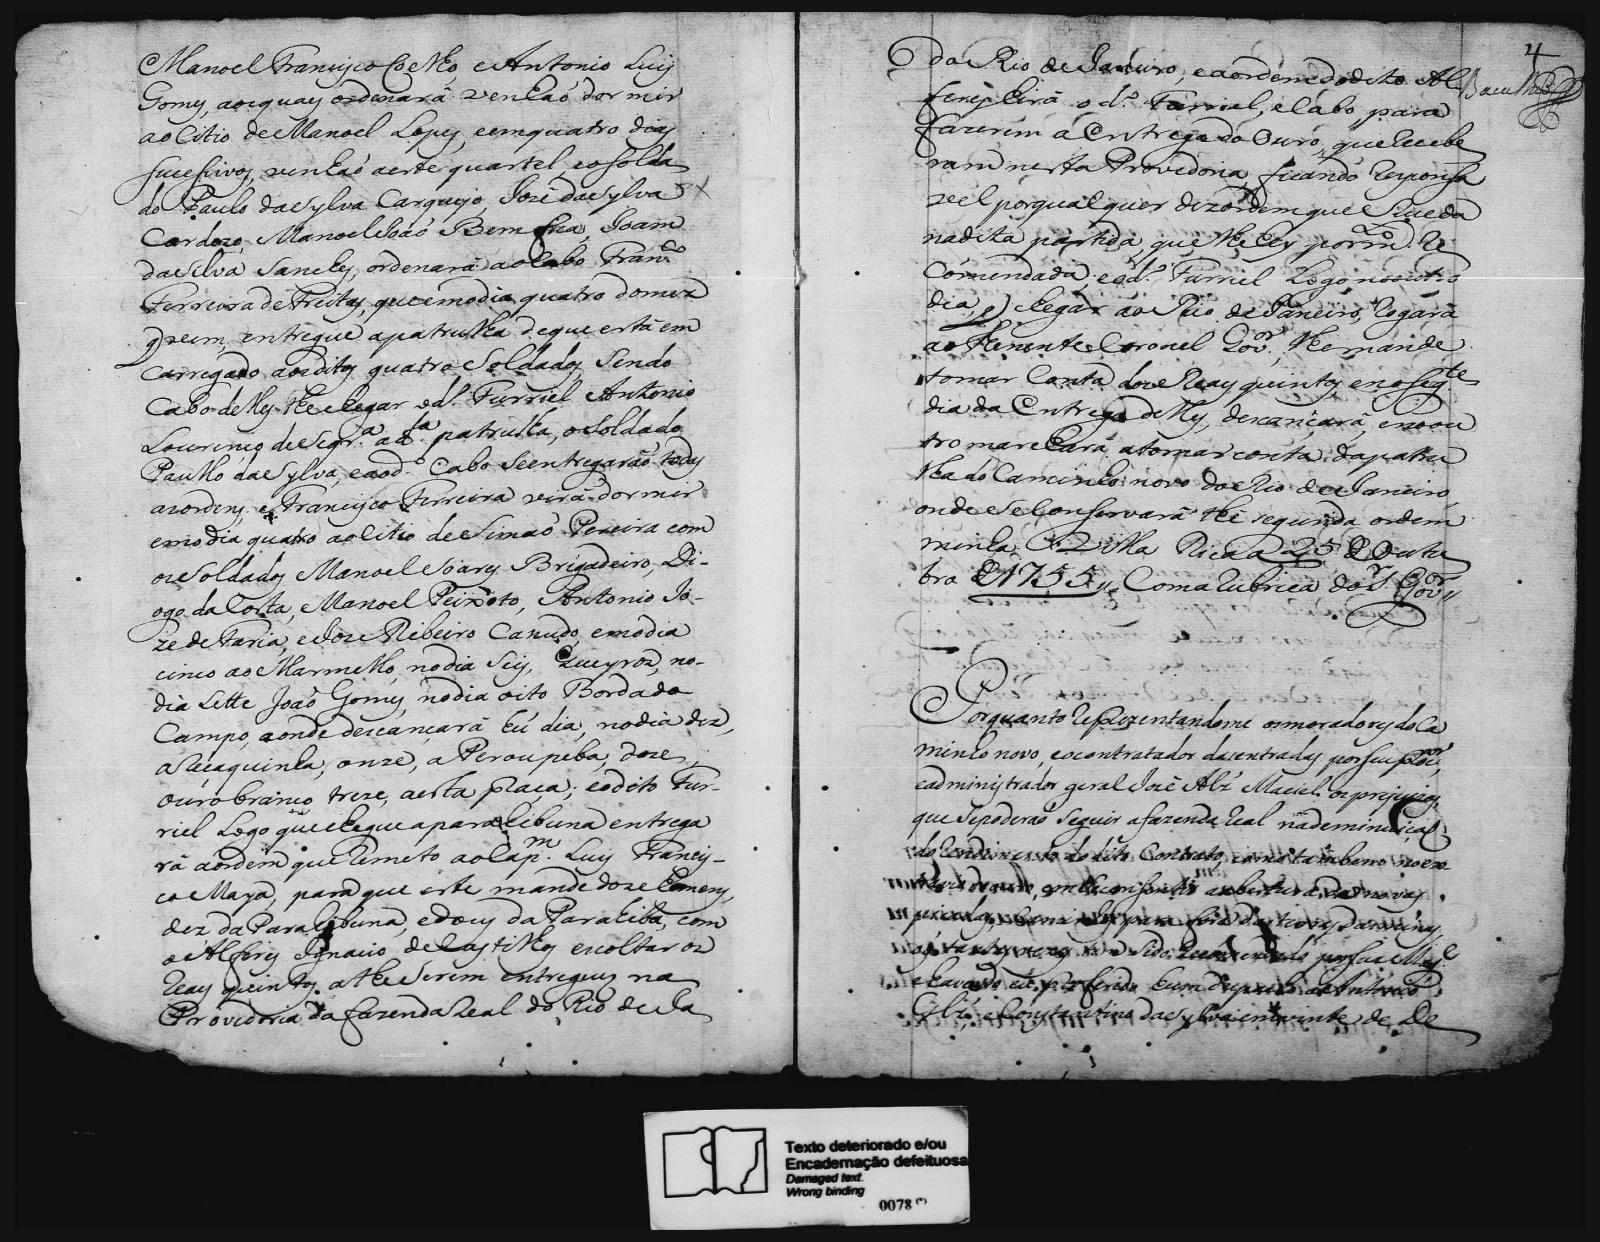 Manoel Francisco Coelho e Antonio Luis
Gomes, aos quaes ordenará venhaó dormir
ao Citio de Manoel Lopes, e em quatro dias
sucessivos, venhaó a este quartel, e o solda
do Paulo da Sylva Carquejo, José da Sylva
Cardozo, Manoel Joaó Bemfica, Joam
da Silva Sanches, ordenará ao Cabo Fran.co
Ferreira de Freitas, que em o dia quatro do mez
q vem, entregue a patrulha de que está em
Carregado aos ditos quatro Soldados Sendo
Cabo delles the chegar o d.o Furriel Antonio
Lourenço de Segr.a a d.ta patrulha, o Soldado
Paulho da Sylva, e ao d.o Cabo Se entregaraó todas
as ordens, e Francisco Ferreira virá dormir
em o dia quatro ao Citio de Simaó Pereira com
os Soldados Manoel Soares Brigadeiro, Di-
ogo da Costa, Manoel Peixoto, Antonio Jo-
ze de Faria, e Joze Ribeiro Canudo, em o dia
cinco ao Marmelho, no dia Seis, Queyroz, no-
dia Sette Joaó Gomes, no dia oito Borda do
Campo, aonde descançará hú dia, no dia dez,
a Reçaquinha, onze, a Peroupeba, doze,
ouro branco, treze, a esta praça; e o dito Fur-
riel Logo que chegue a paraiibuna entrega
rá a ordem que Remeto ao Cap.m Luis Francis-
co Maya, para que este mande doze homens,
dez da Paraiibuna, e dous da Parahiba, com
o Alferes Ignacio de Castilhos escoltar os
Reaes quintos athe Serem entregues na
Providoria da fazenda Real do Rio de Ja
4
do Rio de Janeiro, e a ordem do dito Al
feres hirá o d.o Furriel, e Cabo para
fazerem a Entrega do Ouro, que Recebe
ram nesta Provedoria, ficando responsa
vel por qualquer dezordem que Suceda
na dita partida, que lhe hey por m.to Re
Comendada, e o d.o Furriel Logo no outro
dia, q chegar ao Rio de Janeiro, Rogará
ao Thenente Coronel Gov.or lhe mande
tomar Conta dos Reaes quintos, e no seg.te
dia da Entrega delles, descançará, e no ou
tro marchará a tomar conta da patru
lha do Caminho novo do Rio de Janeiro
onde Se Conservará thé segunda ordem
minha. Villa Rica a 25 de Outu
bro de 1755 // Com a rubrica do S.r Gov.or //
Porquanto Reprezentandome os moradores do Ca
minho novo, e o contratador das entradas por seu proc.or
e administrador geral José Alz' Maciel os prejuizos,
que Se poderaó Seguir a fazenda Real na deminuiçaó
do Rendimento do dito Contrato, como tambem
e havendo eu proferido hum despacho a Antonio
Glz', e Constantino da Sylva em vinte de De
Texto deteriorado e/ou
Encadernação defeituosa
Damaged text.
Wrong binding
0078 (*)